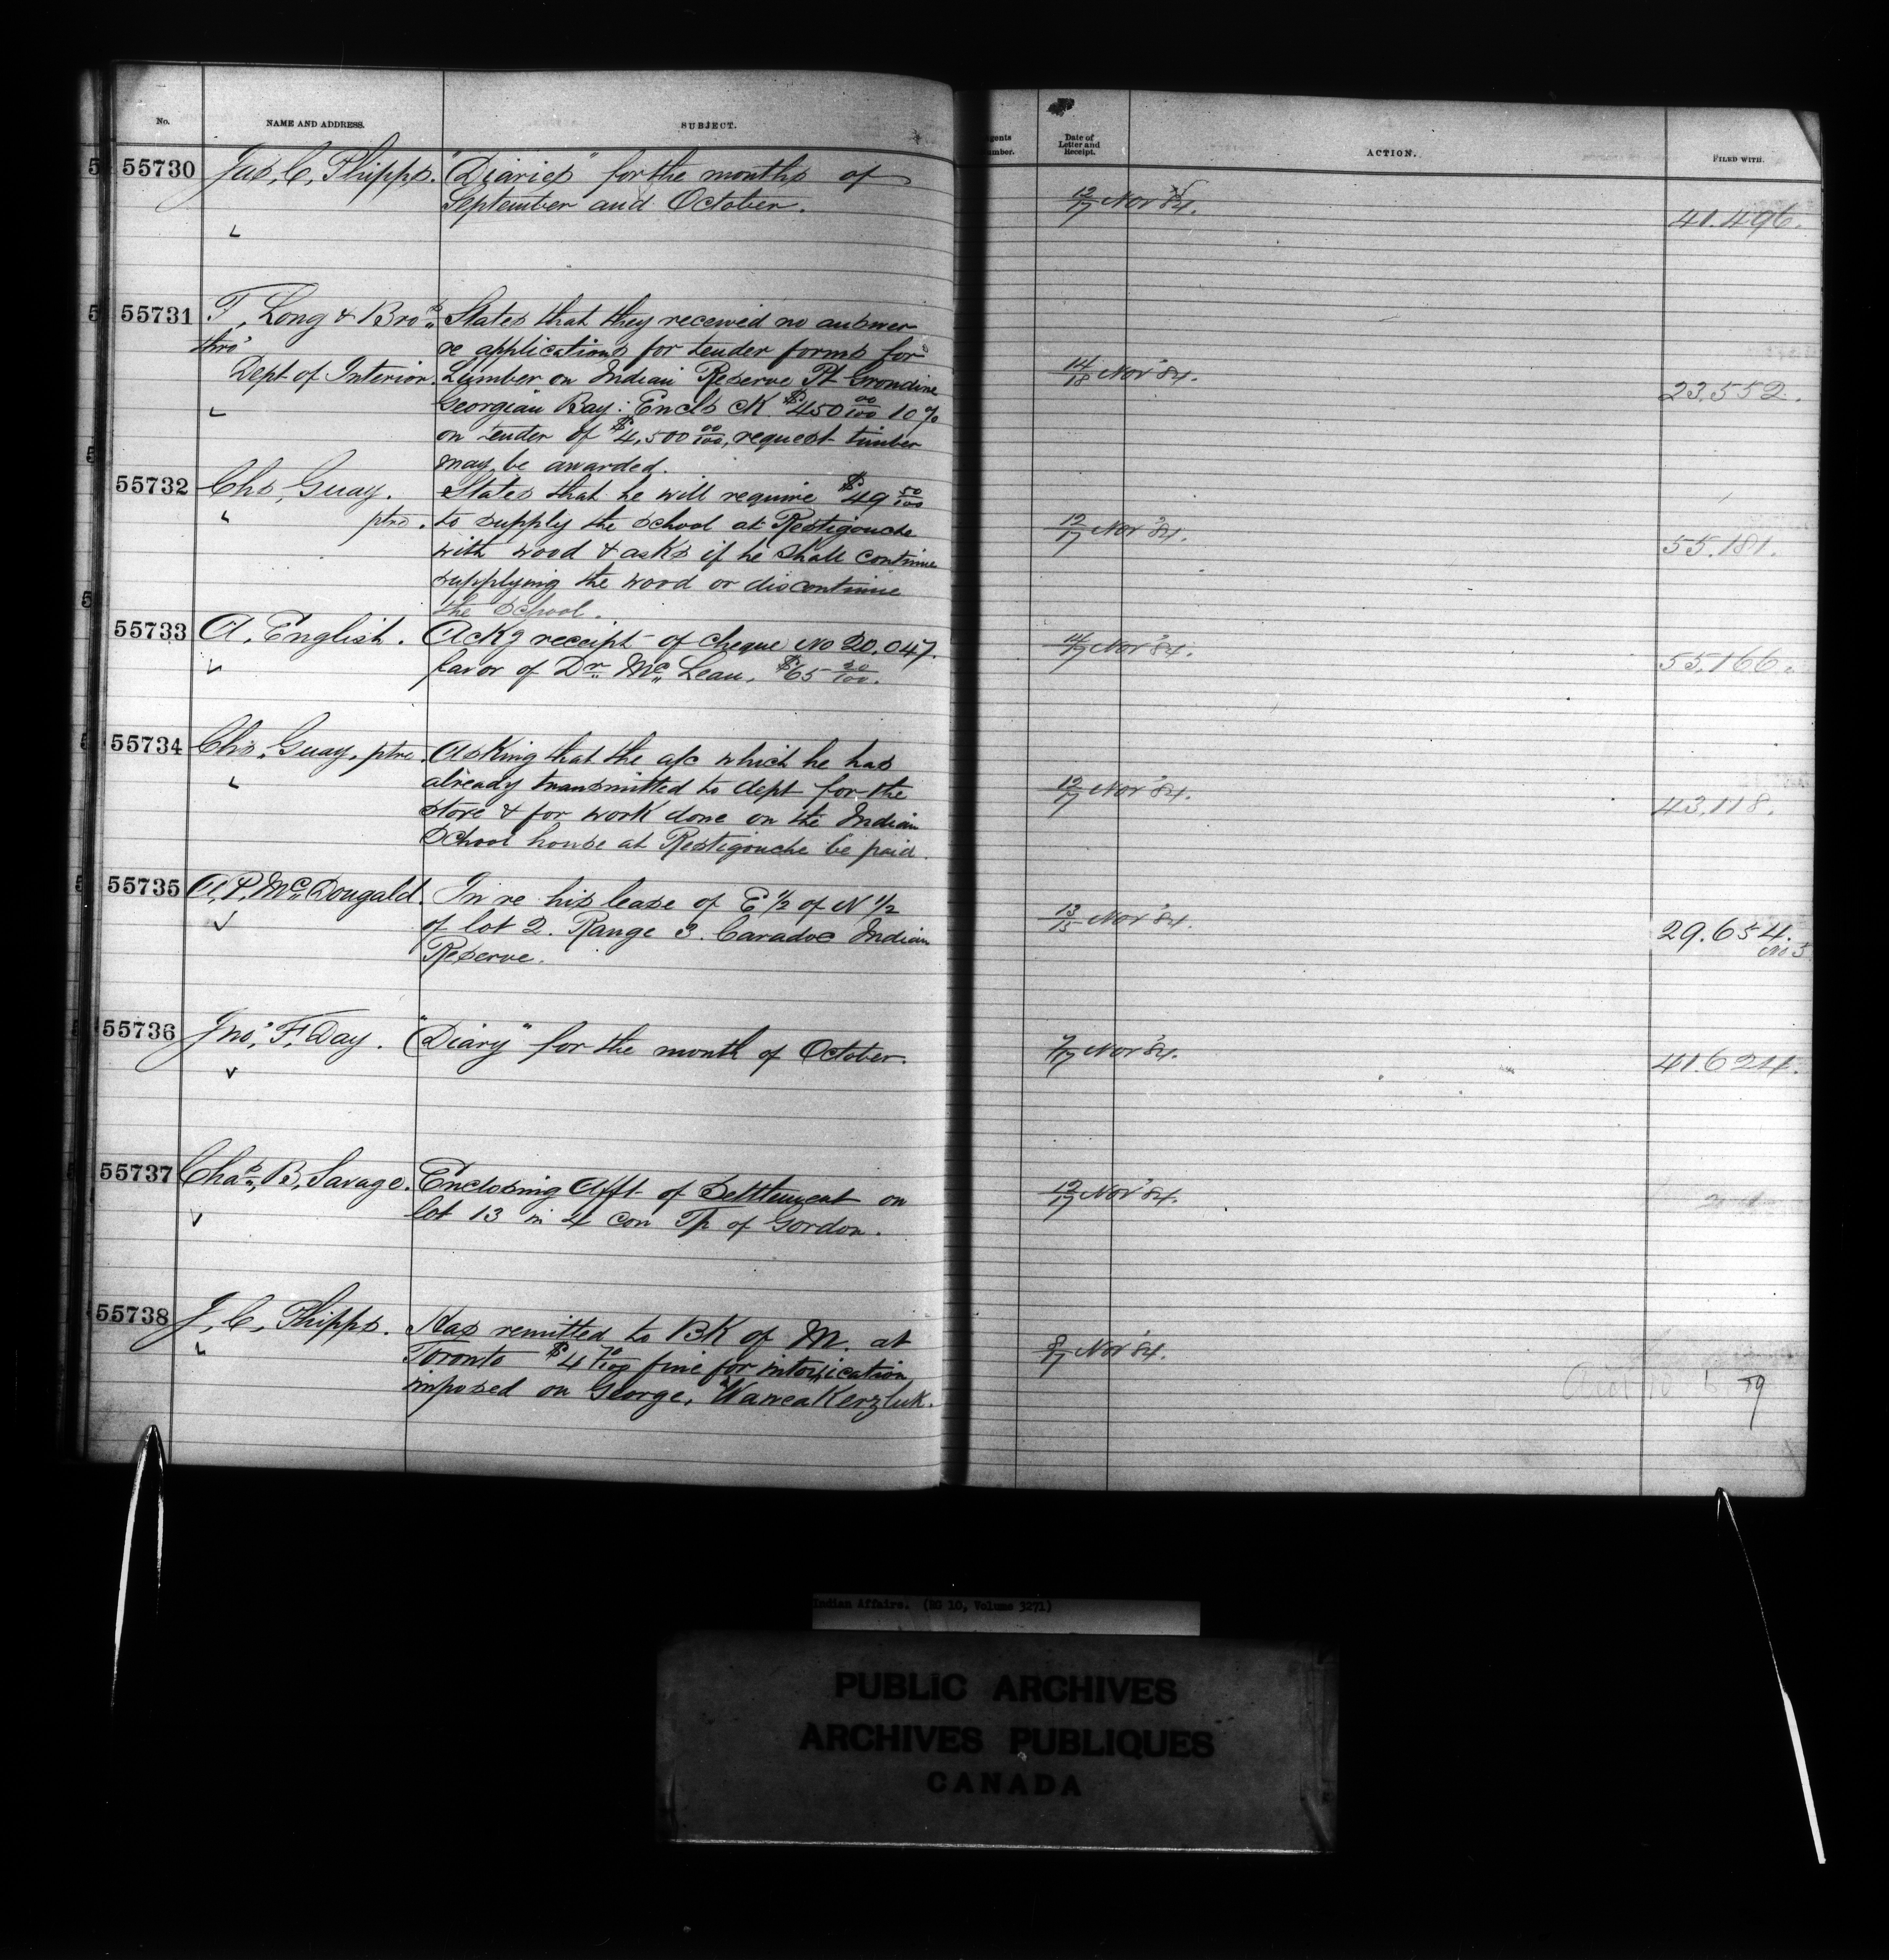 No. NAME AND ADDRESS. SUBJECT. Date of Letter and Receipt. ACTION. FILED WITH.
55730 Jas, C, Phipps. "Diaries" for the months of
September and October. 12/17 Nov '84. 41.496.
55731 T, Long & Bro.s States that they received no answer
thro' re applications for tender forms for
Dept of Interior. Lumber on Indian Reserve Pt Grondine 14/18 Nov '84. 23.552.
Georgian Bay: Encls ck $450 00/100 10%
on tender of $4,500 00/100, request timber
may be awarded.
55732 Chs, Guay. States that he will require $49 50/100
ptre. to supply the school at Restigouche 12/17 Nov '84. 55.181.
with wood & asks if he shall continue
supplying the wood or discontinue
the School.
55733 A, English. Ackg receipt of cheque No 20.047. 14/17 Nov '84. 55.166.
favor of Dr. Mc Lean, $65
55734 Chs, Guay, ptre. Asking that the a/c which he has
already transmitted to dept for the 12/17 Nov '84. 43.118.
store & for work done on the Indian
School house at Restigouche be paid.
55735 A, P, McDougald. In re his lease of E 1/2 of N 1/2 13/15 Nov '84.
of lot 2. Range 3. Caradoc Indian 29.654.
Reserve. No 5
55736 Jno, F, Day. "Diary" for the month of October. 7/17 Nov '84. 41.624.
55737 Chas, B, Savage. Enclosing Afft of Settlement on 12/17 Nov '84.
lot 13 in 4 con Tp of Gordon.
55738 J, C, Phipps. Has remitted to BK of M. at
Toronto $4 70/100 fine for intoxication 8/17 Nov '84.
imposed on George,
Indian Affairs. (RG 10, Volume 3271)
PUBLIC ARCHIVES
ARCHIVES PUBLIQUES
CANADA